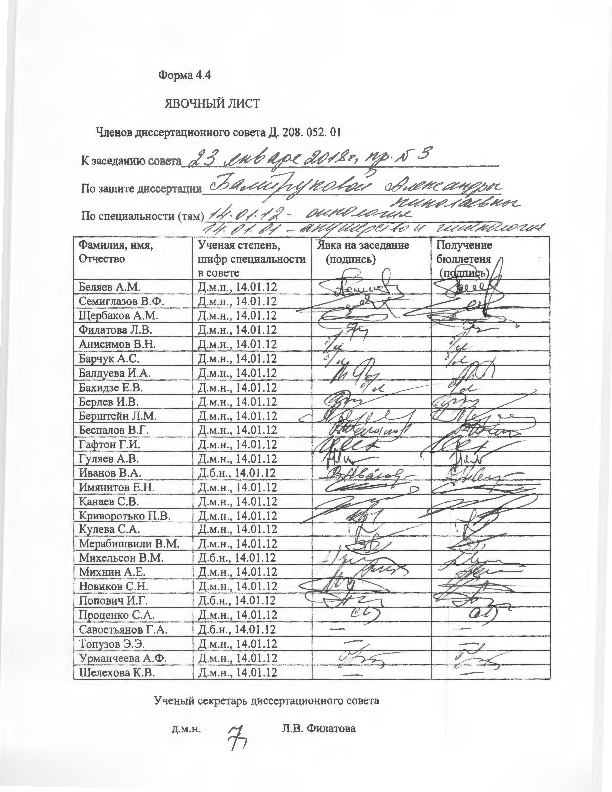 Форма 4.4
ЯВОЧНЫЙ ЛИСТ
Членов диссертационного совета Д. 208. 052. 01
К заседанию совета 23 января 2018г, пр. № 3
По защите диссертации Александры
Николаевны
По специальности (тям) 14.01.12 - онкология
14.01.01 - акушерство и гинекология
Фамилия, имя, Отчество Ученая степень, шифр специальности в совете Явка на заседание (подпись) Получение бюллетеня (подпись)
Беляев А.М. Д.м.н., 14.01.12
Семиглазов В.Ф. Д.м.н., 14.01.12
Щербаков А.М. Д.м.н., 14.01.12
Филатова Л.В. Д.м.н., 14.01.12
Анисимов В.Н. Д.м.н., 14.01.12
Барчук А.С. Д.м.н., 14.01.12
Балдуева И.А. Д.м.н., 14.01.12
Бахидзе Е.В. Д.м.н., 14.01.12
Берлев И.В. Д.м.н., 14.01.12
Берштейн Л.М. Д.м.н., 14.01.12
Беспалов В.Г. Д.м.н., 14.01.12
Гафтон Г.И. Д.м.н., 14.01.12
Гуляев А.В. Д.м.н., 14.01.12
Иванов В.А. Д.б.н., 14.01.12
Имянитов Е.Н. Д.м.н., 14.01.12
Канаев С.В. Д.м.н., 14.01.12
Криворотько П.В. Д.м.н., 14.01.12
Кулева С.А. Д.м.н., 14.01.12
Мерабишвили В.М. Д.м.н., 14.01.12
Михельсон В.М. Д.б.н., 14.01.12
Михнин А.Е. Д.м.н., 14.01.12
Новиков С.Н. Д.м.н., 14.01.12
Попович И.Г. Д.б.н., 14.01.12
Проценко С.А. Д.м.н., 14.01.12
Савостьянов Г.А. Д.б.н., 14.01.12 — —
Топузов Э.Э. Д.м.н., 14.01.12 — —
Урманчеева А.Ф. Д.м.н., 14.01.12
Шелехова К.В. Д.м.н., 14.01.12 — —
Ученый секретарь диссертационного совета
д.м.н. Л.В. Филатова